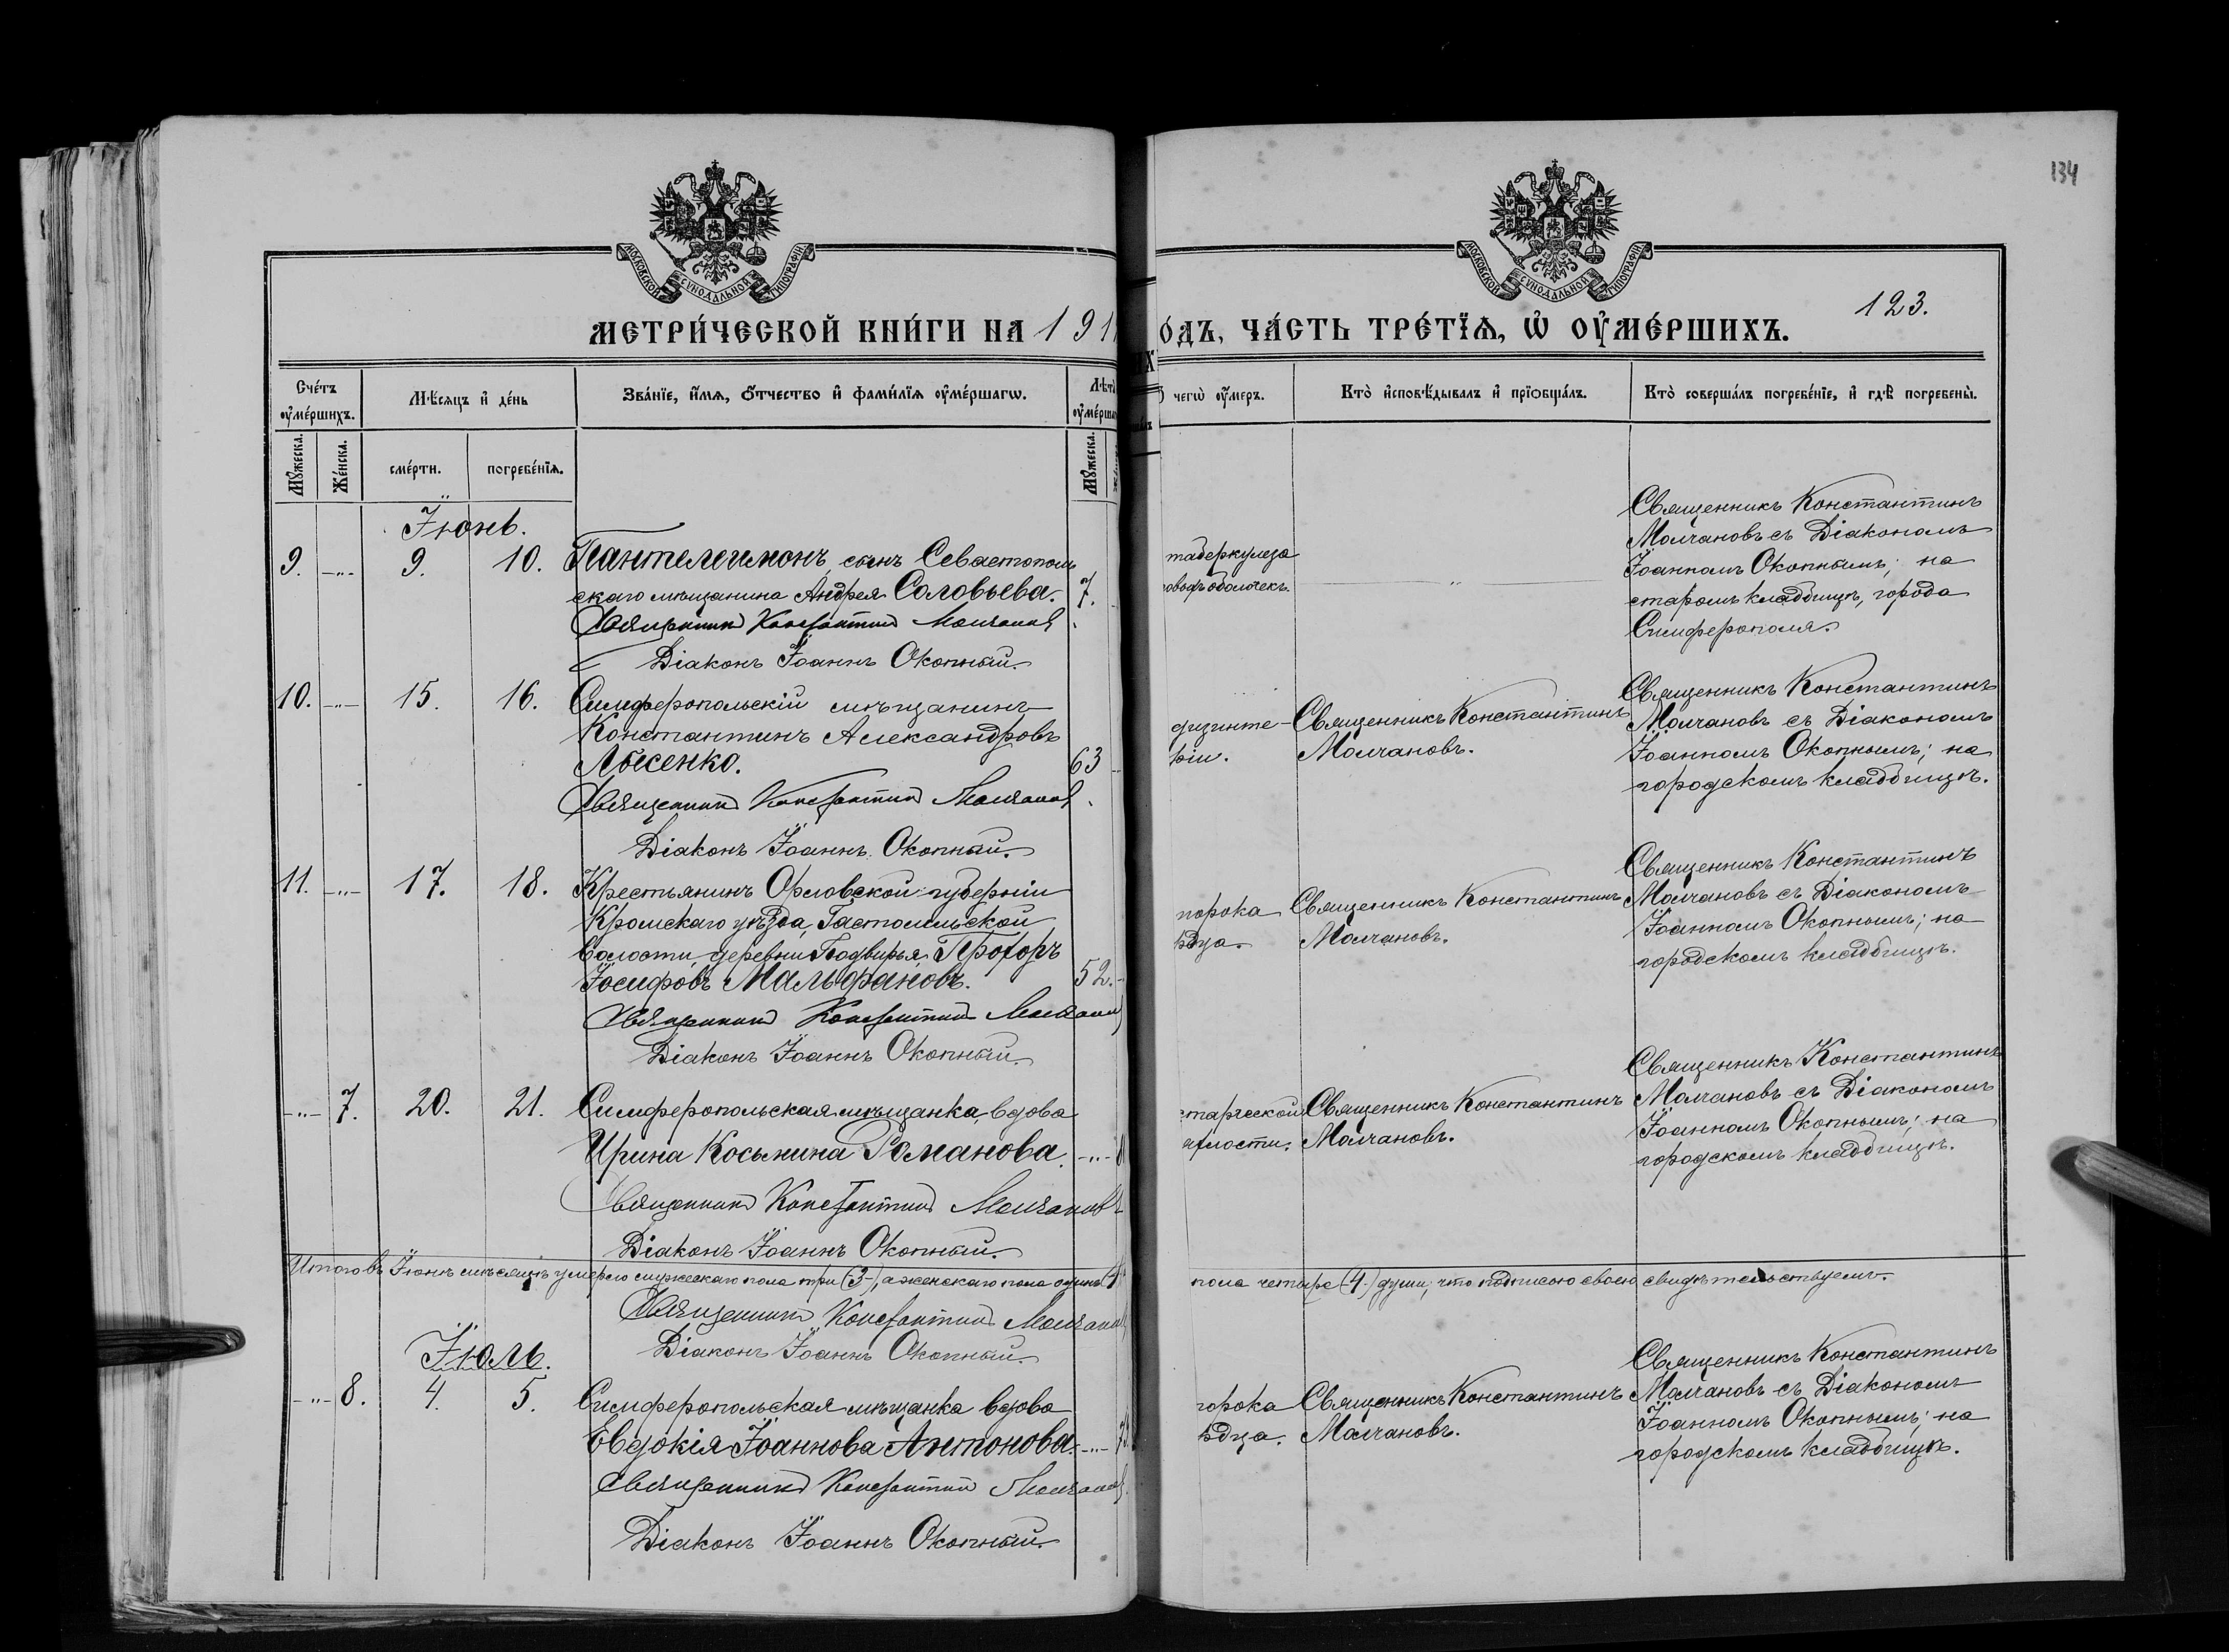 134
МОСКОВСКОЙ СѴНОДАЛЬНОЙ ТИПОГРАФІИ
МОСКОВСКОЙ СѴНОДАЛЬНОЙ ТИПОГРАФІИ
123.
МЕТРИ́ЧЕСКОЙ КНИ́ГИ НА 191
ОДЪ, ЧА́СТЬ ТРЕ́ТЇѦ, Ѡ҆ ОУ҆МЕ́РШИХЪ.
Сче́тъ оу҆ме́ршихъ.
Мѣ́сѧцъ и҆ де́нь
Зва́нїе, и҆́мѧ, ѻ҆́тчество и҆ фами́лїѧ оу҆ме́ршагѡ.
Лѣт
оу҆ме́рша
чегѡ̀ оу҆́меръ.
Кто̀ и҆сповѣ́дывалъ и҆ прїѡбща́лъ.
Кто̀ соверша́лъ погребе́нїе, и҆ гдѣ̀ погребены̀.
Мꙋ́жеска.
Же́нска.
сме́рти.
погребе́нїѧ.
Мꙋ́жеска.
Іюнь.
9. -"- 9. 10. Пантелеимонъ, сынъ Севастополь
скаго мѣщанина Андрея Соловьева. 7.
Священникъ Константинъ Молчановъ
Діаконъ Іоаннъ Окопный.
туберкулеза
овыхъ оболочекъ.
"
Священникъ Константинъ
Молчановъ съ Діакономъ
Іоанномъ Окопнымъ; на
старомъ кладбищѣ, города
Симферополя.
10. -"- 15. 16. Симферопольскій мѣщанинъ
Константинъ Александровъ
Лысенко. 63
Священникъ Константинъ Молчановъ
Діаконъ Іоаннъ Окопный.
дизинте-
ріи.
Священникъ Константинъ
Молчановъ.
Священникъ Константинъ
Молчановъ съ Діакономъ
Іоанномъ Окопнымъ; на
городскомъ кладбищѣ.
11. -"- 17. 18. Крестьянинъ Орловской губерніи
Кромскаго уѣзда, Гастомльской
волости, деревни Подвирья, Прохоръ
Іосифовъ Мальфановъ. 52.
Священникъ Константинъ Молчановъ
Діаконъ Іоаннъ Окопный.
порока
рдца.
Священникъ Константинъ
Молчановъ.
Священникъ Константинъ
Молчановъ съ Діакономъ
Іоанномъ Окопнымъ; на
городскомъ кладбищѣ.
-"- 7. 20. 21. Симферопольская мѣщанка, вдова
Ирина Косьмина Романова. -"-
Священникъ Константинъ Молчановъ
Діаконъ Іоаннъ Окопный.
старческой
яхлости.
Священникъ Константинъ
Молчановъ.
Священникъ Константинъ
Молчановъ съ Діакономъ
Іоанномъ Окопнымъ; на
городскомъ кладбищѣ.
Итого въ Іюнѣ мѣсяцѣ умерло мужескаго пола три (3), а женскаго пола одна (1
пола четыре (4) души, что подписью своею свидѣтельствуемъ.
Священникъ Константинъ Молчановъ
Діаконъ Іоаннъ Окопный.
Іюль.
-"- 8. 4. 5. Симферопольская мѣщанка вдова
Евдокія Іоаннова Антонова. -"- 7
Священникъ Константинъ Молчановъ
Діаконъ Іоаннъ Окопный.
порока
рдца.
Священникъ Константинъ
Молчановъ.
Священникъ Константинъ
Молчановъ съ Діакономъ
Іоанномъ Окопнымъ; на
городскомъ кладбищѣ.